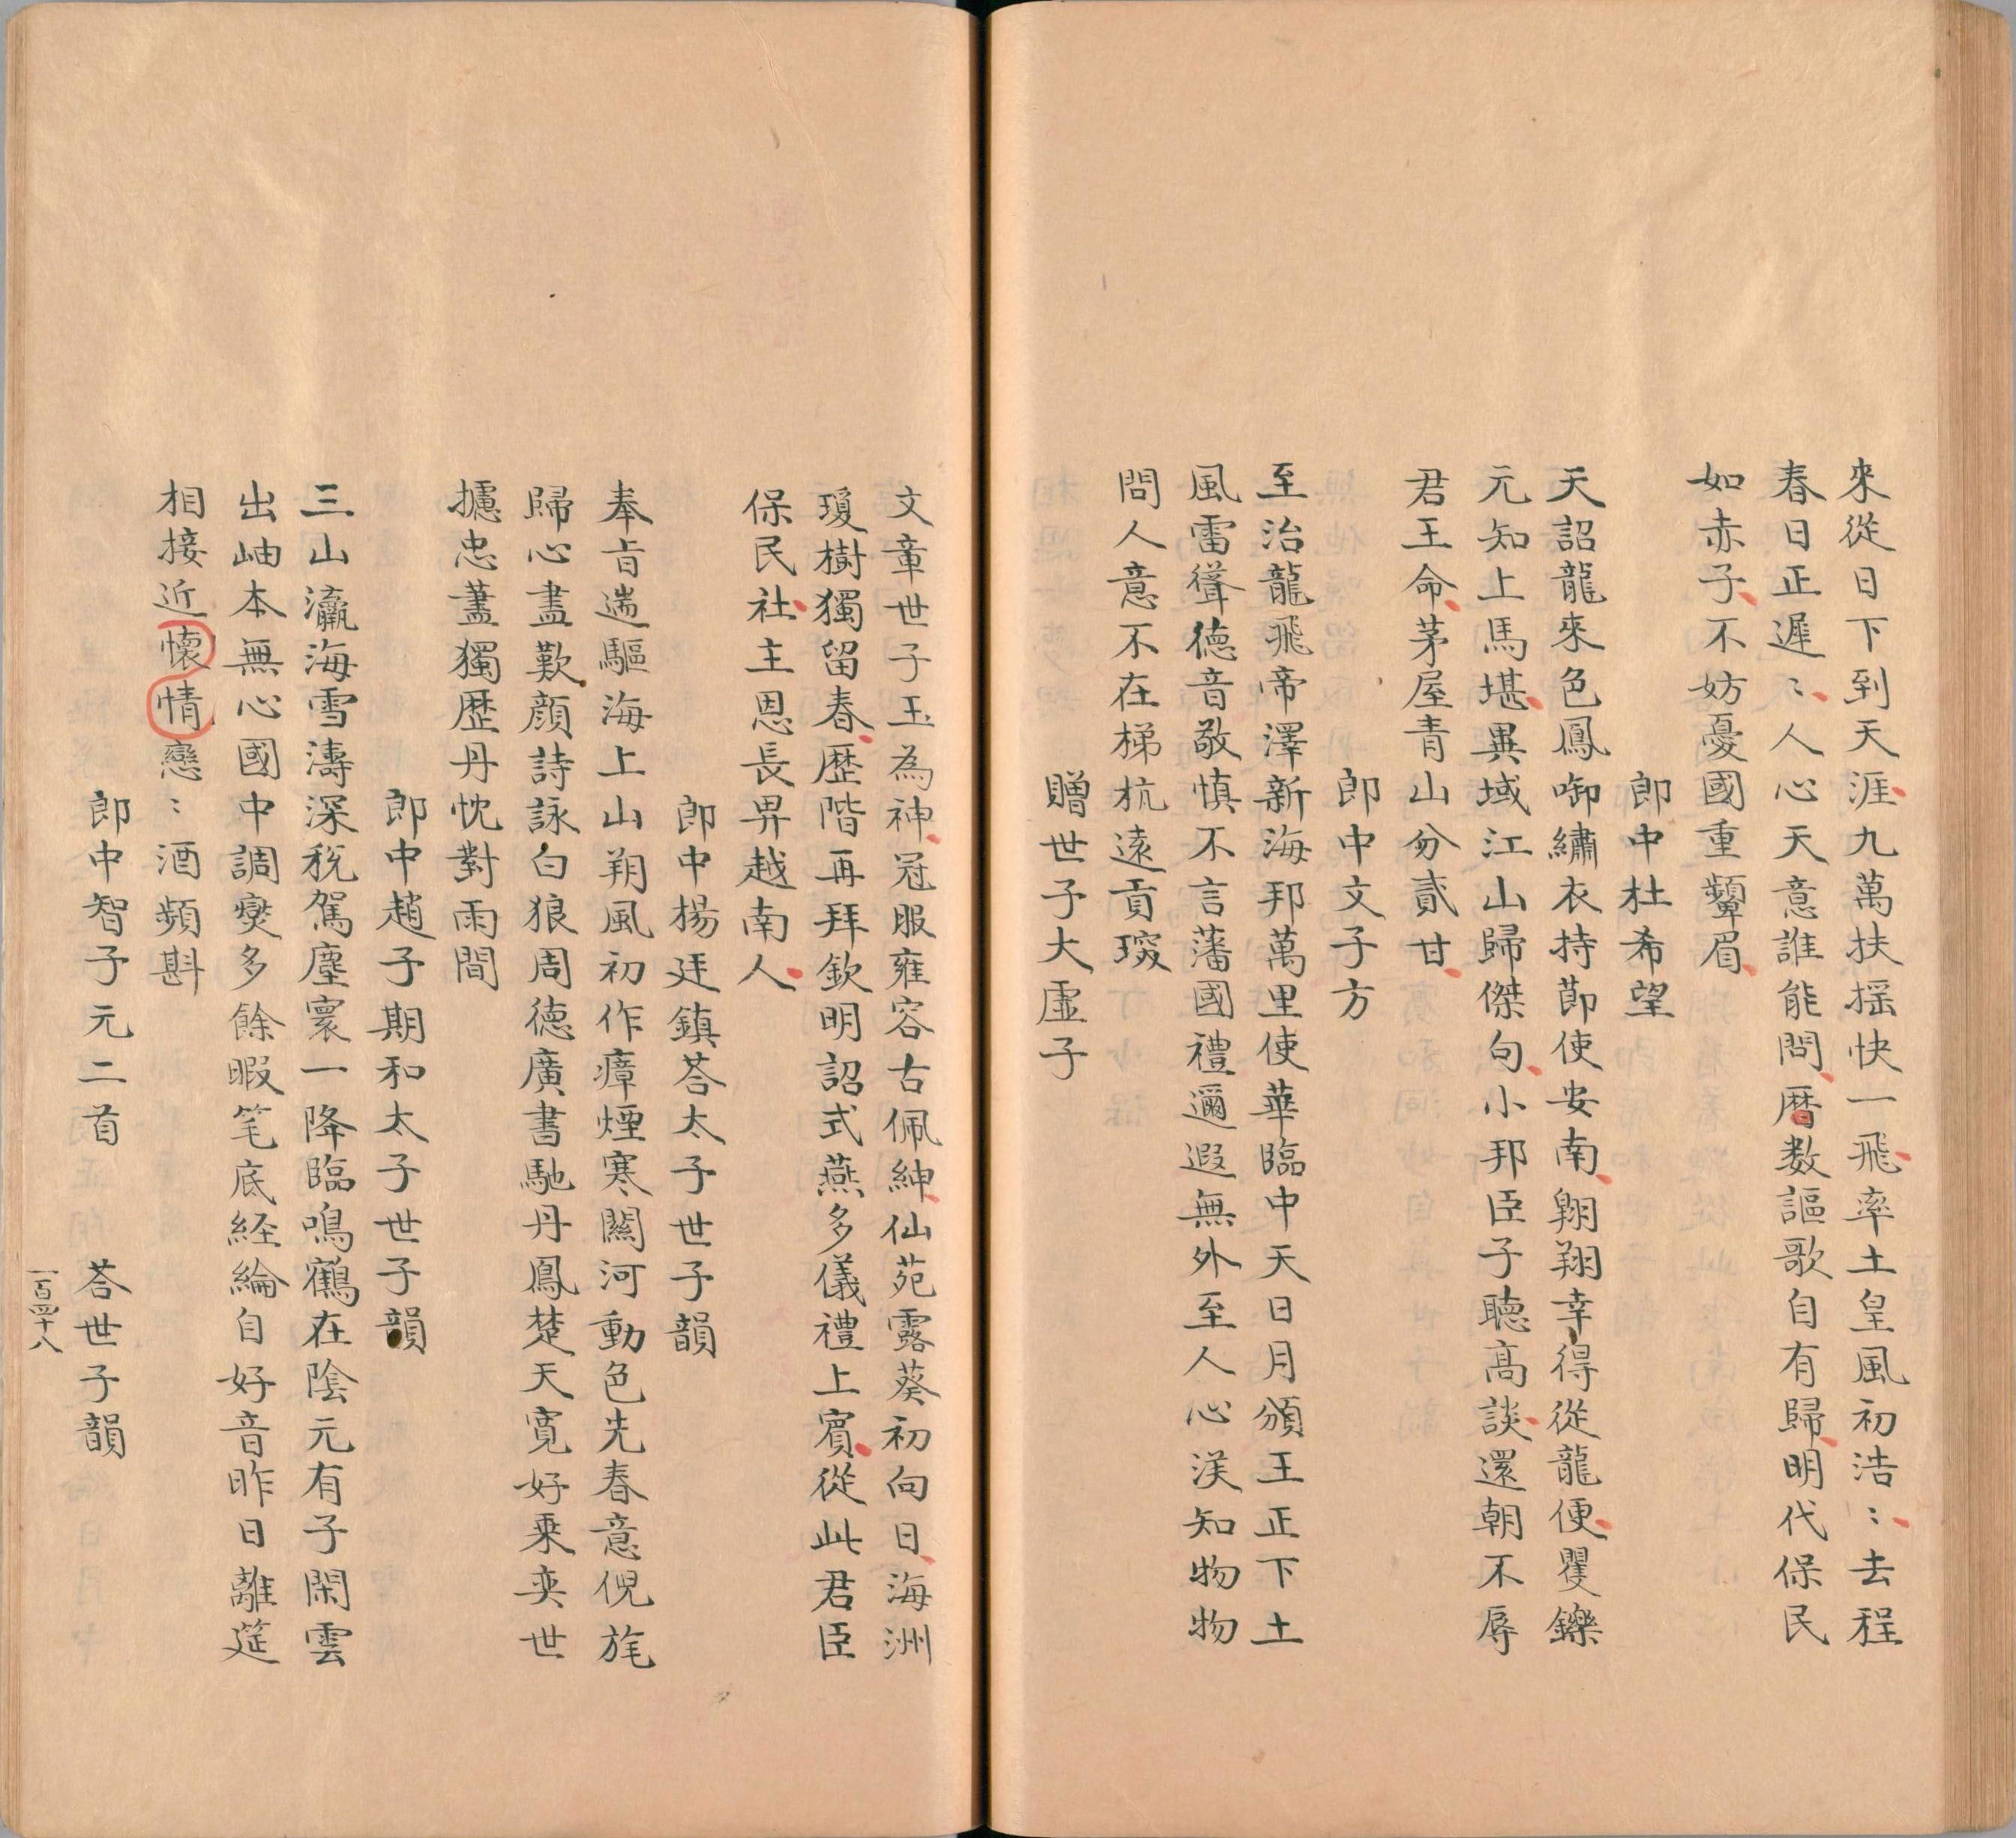 來從日下到天涯九萬扶揺快一飛率土皇風初浩〻去程
春日正遲〻人心天意誰能問暦数謳歌自有歸明代保民
如赤子不妨憂國重顰眉
郎中杜希望
天詔龍來色鳳啣繡衣持莭使安南翱翔幸得從龍便矍鑠
元知上馬堪異域江山歸傑句小邦臣子聴髙談還朝不辱
君王命茅屋青山分貳甘
郎中文子方
至治龍飛帝澤新海邦萬里使華臨中天日月頒王正下土
風雷聳德音敬慎不言藩國禮邇遐無外至人心渼知物物
問人意不在梯杭遠貢琛
贈世子大虛子
文章世子玉為神冠服雍容古佩紳仙苑露葵初向日海洲
瓊樹獨留春歷階再拜欽明詔式燕多儀禮上賓從此君臣
保民社主恩長畀越南人
郎中楊廷鎮荅太子世子韻
奉㫖遄驅海上山朔風初作瘴煙寒關河動色先春意倪旄
歸心盡歎顔詩詠白狼周德廣書馳丹鳳楚天寛好乗奕世
攄忠藎獨歴丹忱對雨間
郎中趙子期和太子世子韻
三山瀛海雪濤深稅駕塵寰一降臨鳴鶴在陰元有子閑雲
出岫本無心國中調爕多餘暇笔底経綸自好音昨日離筵
相接近懷情戀〻酒頻斟
郎中智子元二首 荅世子韻
一百四十八